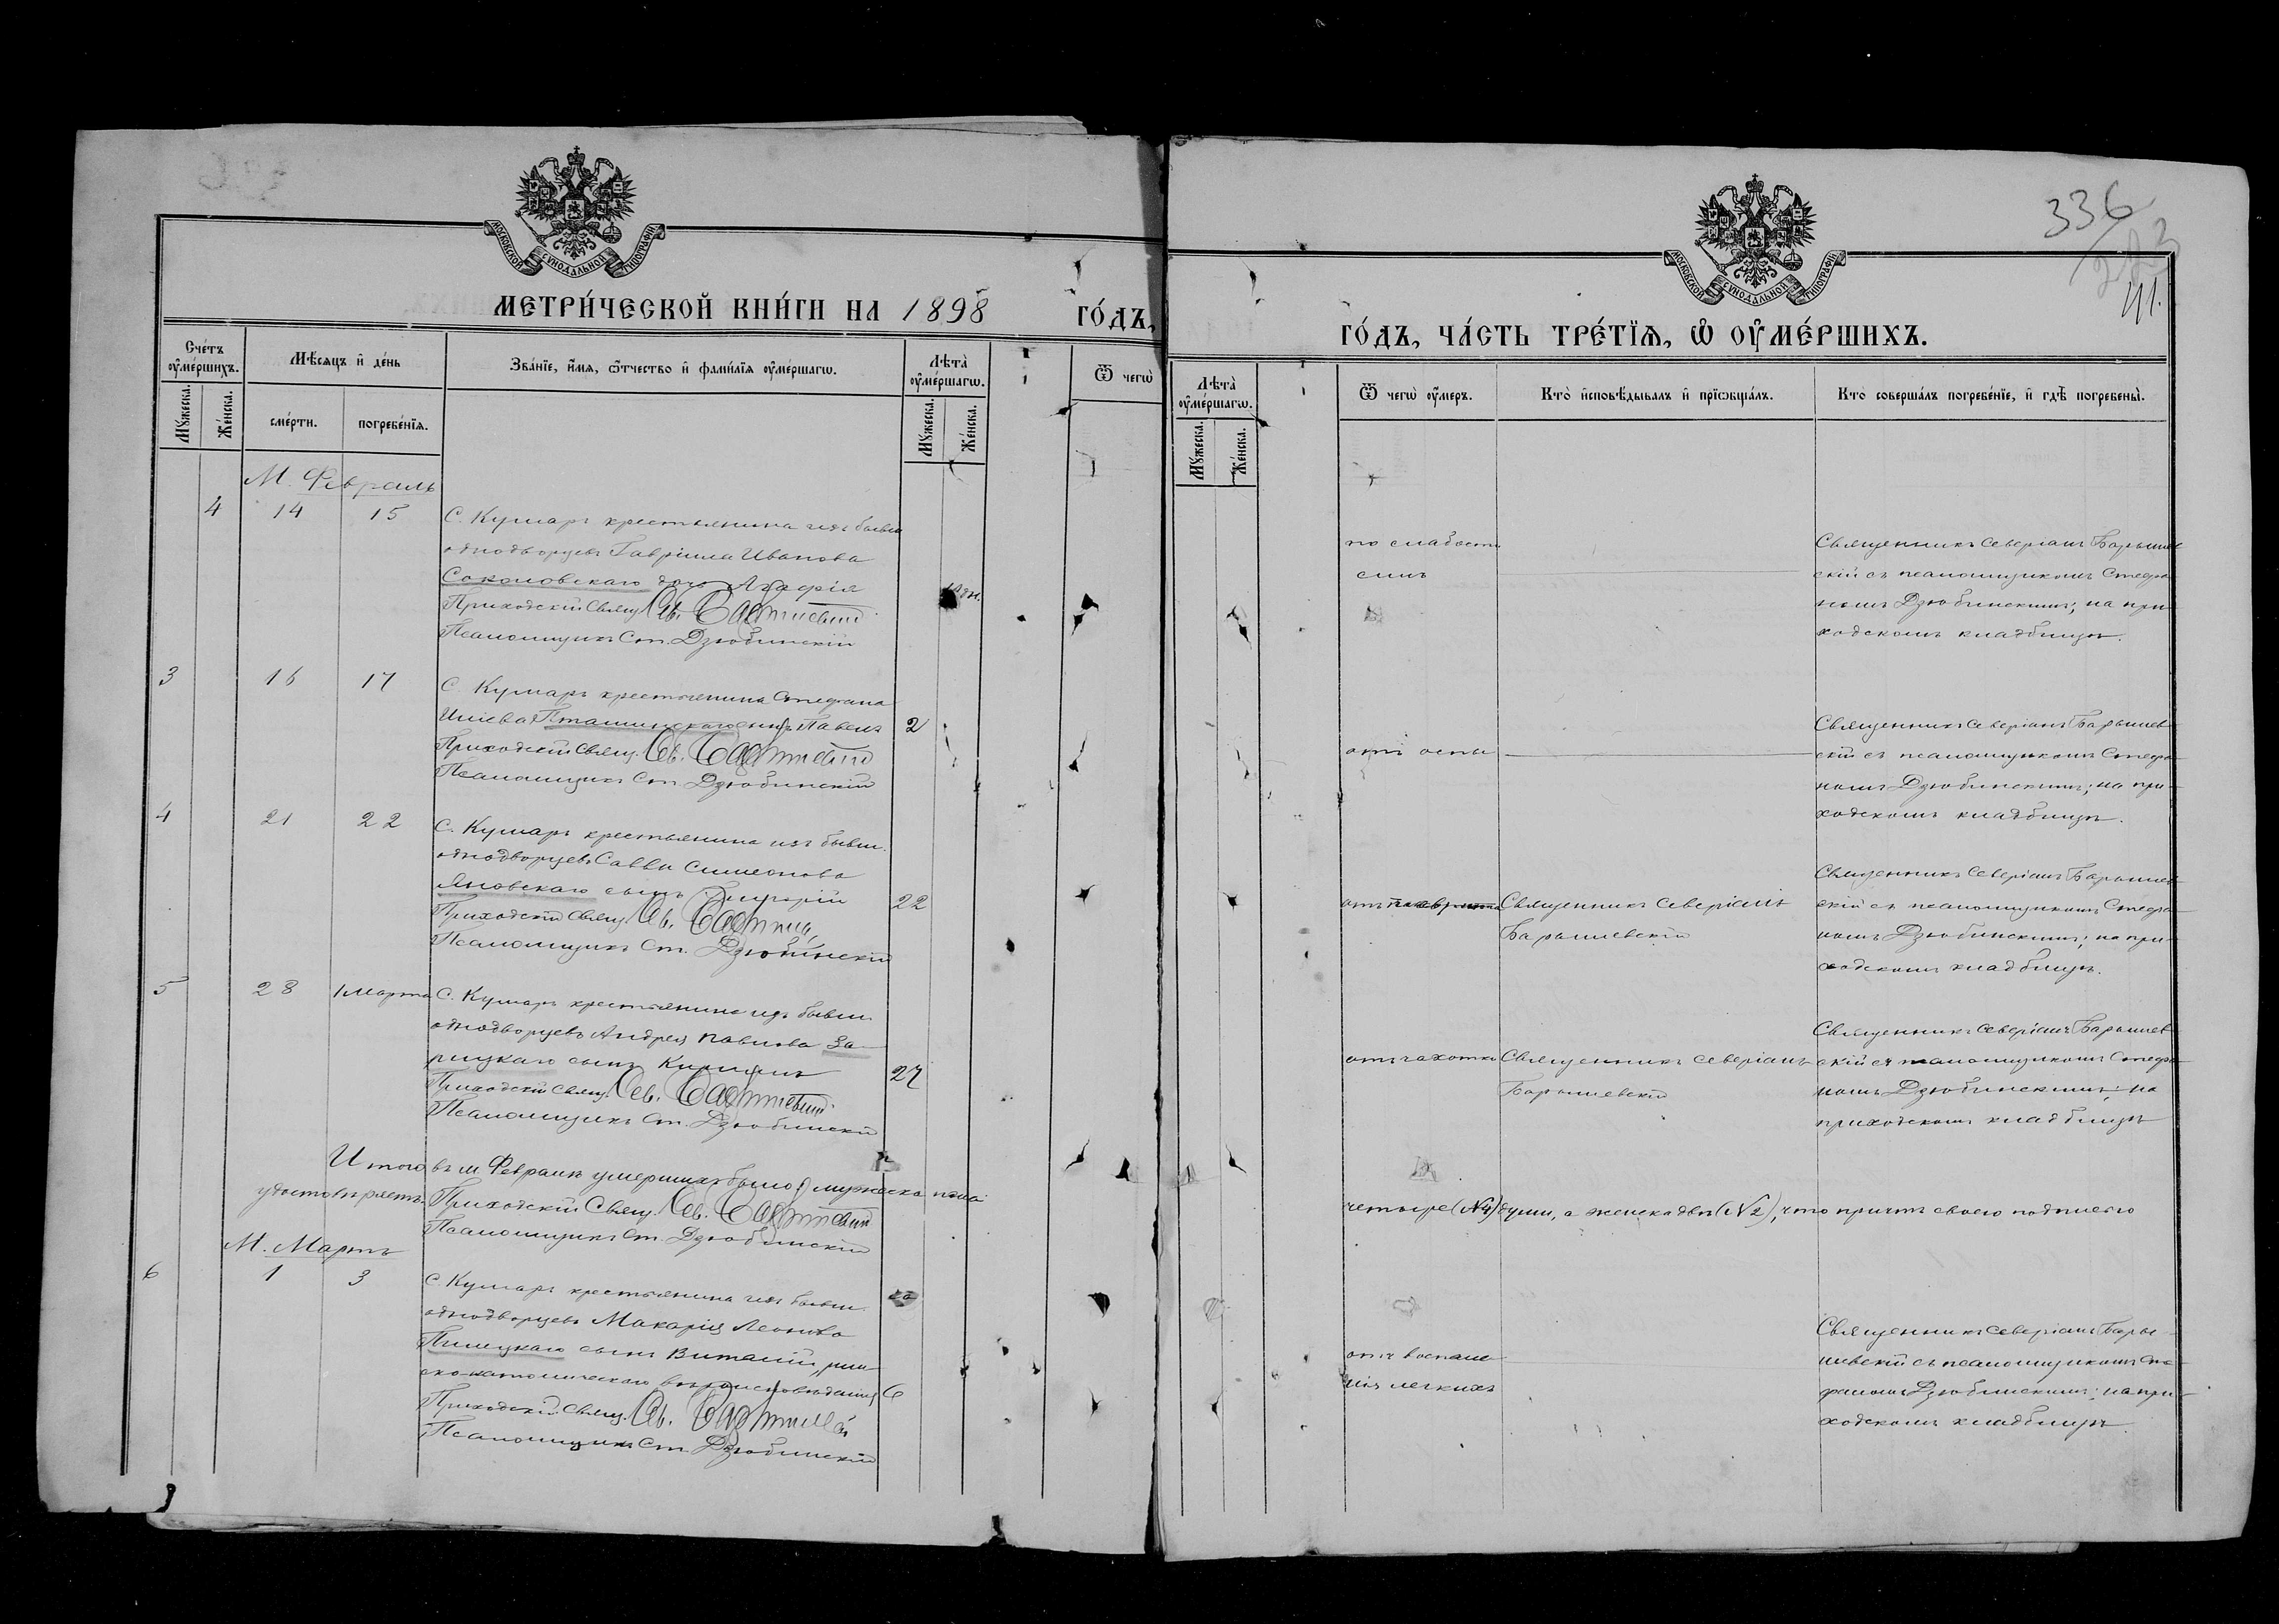 МОСКОВСКОЙ СУНОДАЛЬНОЙ ТИПОГРАФІИ
МОСКОВСКОЙ СУНОДАЛЬНОЙ ТИПОГРАФІИ
336
МЕТРИ́ЧЕСКОЙ КНИ́ГИ НА 1898 ГО́ДЪ,
Сче́тъ ᲂу҆ме́ршихъ.
Мѣ́сяцъ и҆ де́нь
Зва́нїе, и҆́мя, ѻ҆́тчество и҆ фами́лїя ᲂу҆ме́ршагѡ.
Лѣта̀ ᲂу҆ме́ршагѡ.
Ѿ чегѡ̀
Мꙋ́жеска.
Же́нска.
сме́рти.
погребе́нїя.
Мꙋ́жеска.
Же́нска.
М. Февраль
4 14 15
С. Кумаръ крестьянина изъ бывш
однодворцевъ Гавріила Иванова
Соколовскаго дочь Агафія
Приходскій Свящ. Св.
Псаломщикъ Ст. Дзюбинскій
3 16 17
С. Кумаръ крестьянина Стефана
Иліева Пташинскаго сынъ Павелъ 2
Приходскій Свящ. Св.
Псаломщикъ Ст. Дзюбинскій
4 21 22
С. Кумаръ крестьянина изъ бывш.
однодворцевъ Саввы Симеонова
Яновскаго сынъ Григорій 22
Приходскій Свящ. Св.
Псаломщикъ Ст. Дзюбинскій
5 28 1 марта
С. Кумаръ крестьянина изъ бывш.
однодворцевъ Андрея Павлова За-
рицкаго сынъ Кириллъ 27
Приходскій Свящ. Св.
Псаломщикъ Ст. Дзюбинскій
Итого въ м. Февралѣ умершихъ было мужеска пола
удостовѣряетъ. Приходскій Свящ. Св.
Псаломщикъ Ст. Дзюбинскій
М. Мартъ
6 1 3
С. Кумаръ крестьянина изъ бывш.
однодворцевъ Макарія Леонова
Пилецкаго сынъ Виталій, рим-
ско-католическаго вѣроисповѣданія 6
Приходскій Свящ. Св.
Псаломщикъ Ст. Дзюбинскій
ГО́ДЪ, ЧА́СТЬ ТРЕ́ТЇЯ, Ѡ҆ ОУ҆МЕ́РШИХЪ.
Лѣта̀ ᲂу҆ме́ршагѡ.
Ѿ чегѡ̀ ᲂу҆́меръ.
Кто̀ и҆сповѣ́дывалъ и҆ прїѡбща́лъ.
Кто̀ соверша́лъ погребе́нїе, и҆ гдѣ̀ погребены̀.
Мꙋ́жеска.
Же́нска.
по слабости
силъ
Священникъ Северіанъ Барышев
скій съ псаломщикомъ Стефа-
номъ Дзюбинскимъ; на при-
ходскомъ кладбищѣ.
отъ оспы
Священникъ Северіанъ Барышев-
скій съ псаломщикомъ Стефа-
номъ Дзюбинскимъ; на при-
ходскомъ кладбищѣ.
отъ плеврита
Священникъ Северіанъ
Барышевскій
Священникъ Северіанъ Барышев-
скій съ псаломщикомъ Стефа-
номъ Дзюбинскимъ; на при-
ходскомъ кладбищѣ.
отъ чахотки
Священникъ Северіанъ
Барышевскій
Священникъ Северіанъ Барышев-
скій съ псаломщикомъ Стефа-
номъ Дзюбинскимъ; на
приходскомъ кладбищѣ
четыре (№4) души, а женска двѣ (№2), что причтъ своею подписью
отъ воспале-
нія легкихъ
Священникъ Северіанъ Бары-
шевскій съ псаломщикомъ Сте-
фаномъ Дзюбинскимъ; на при-
ходскомъ кладбищѣ.